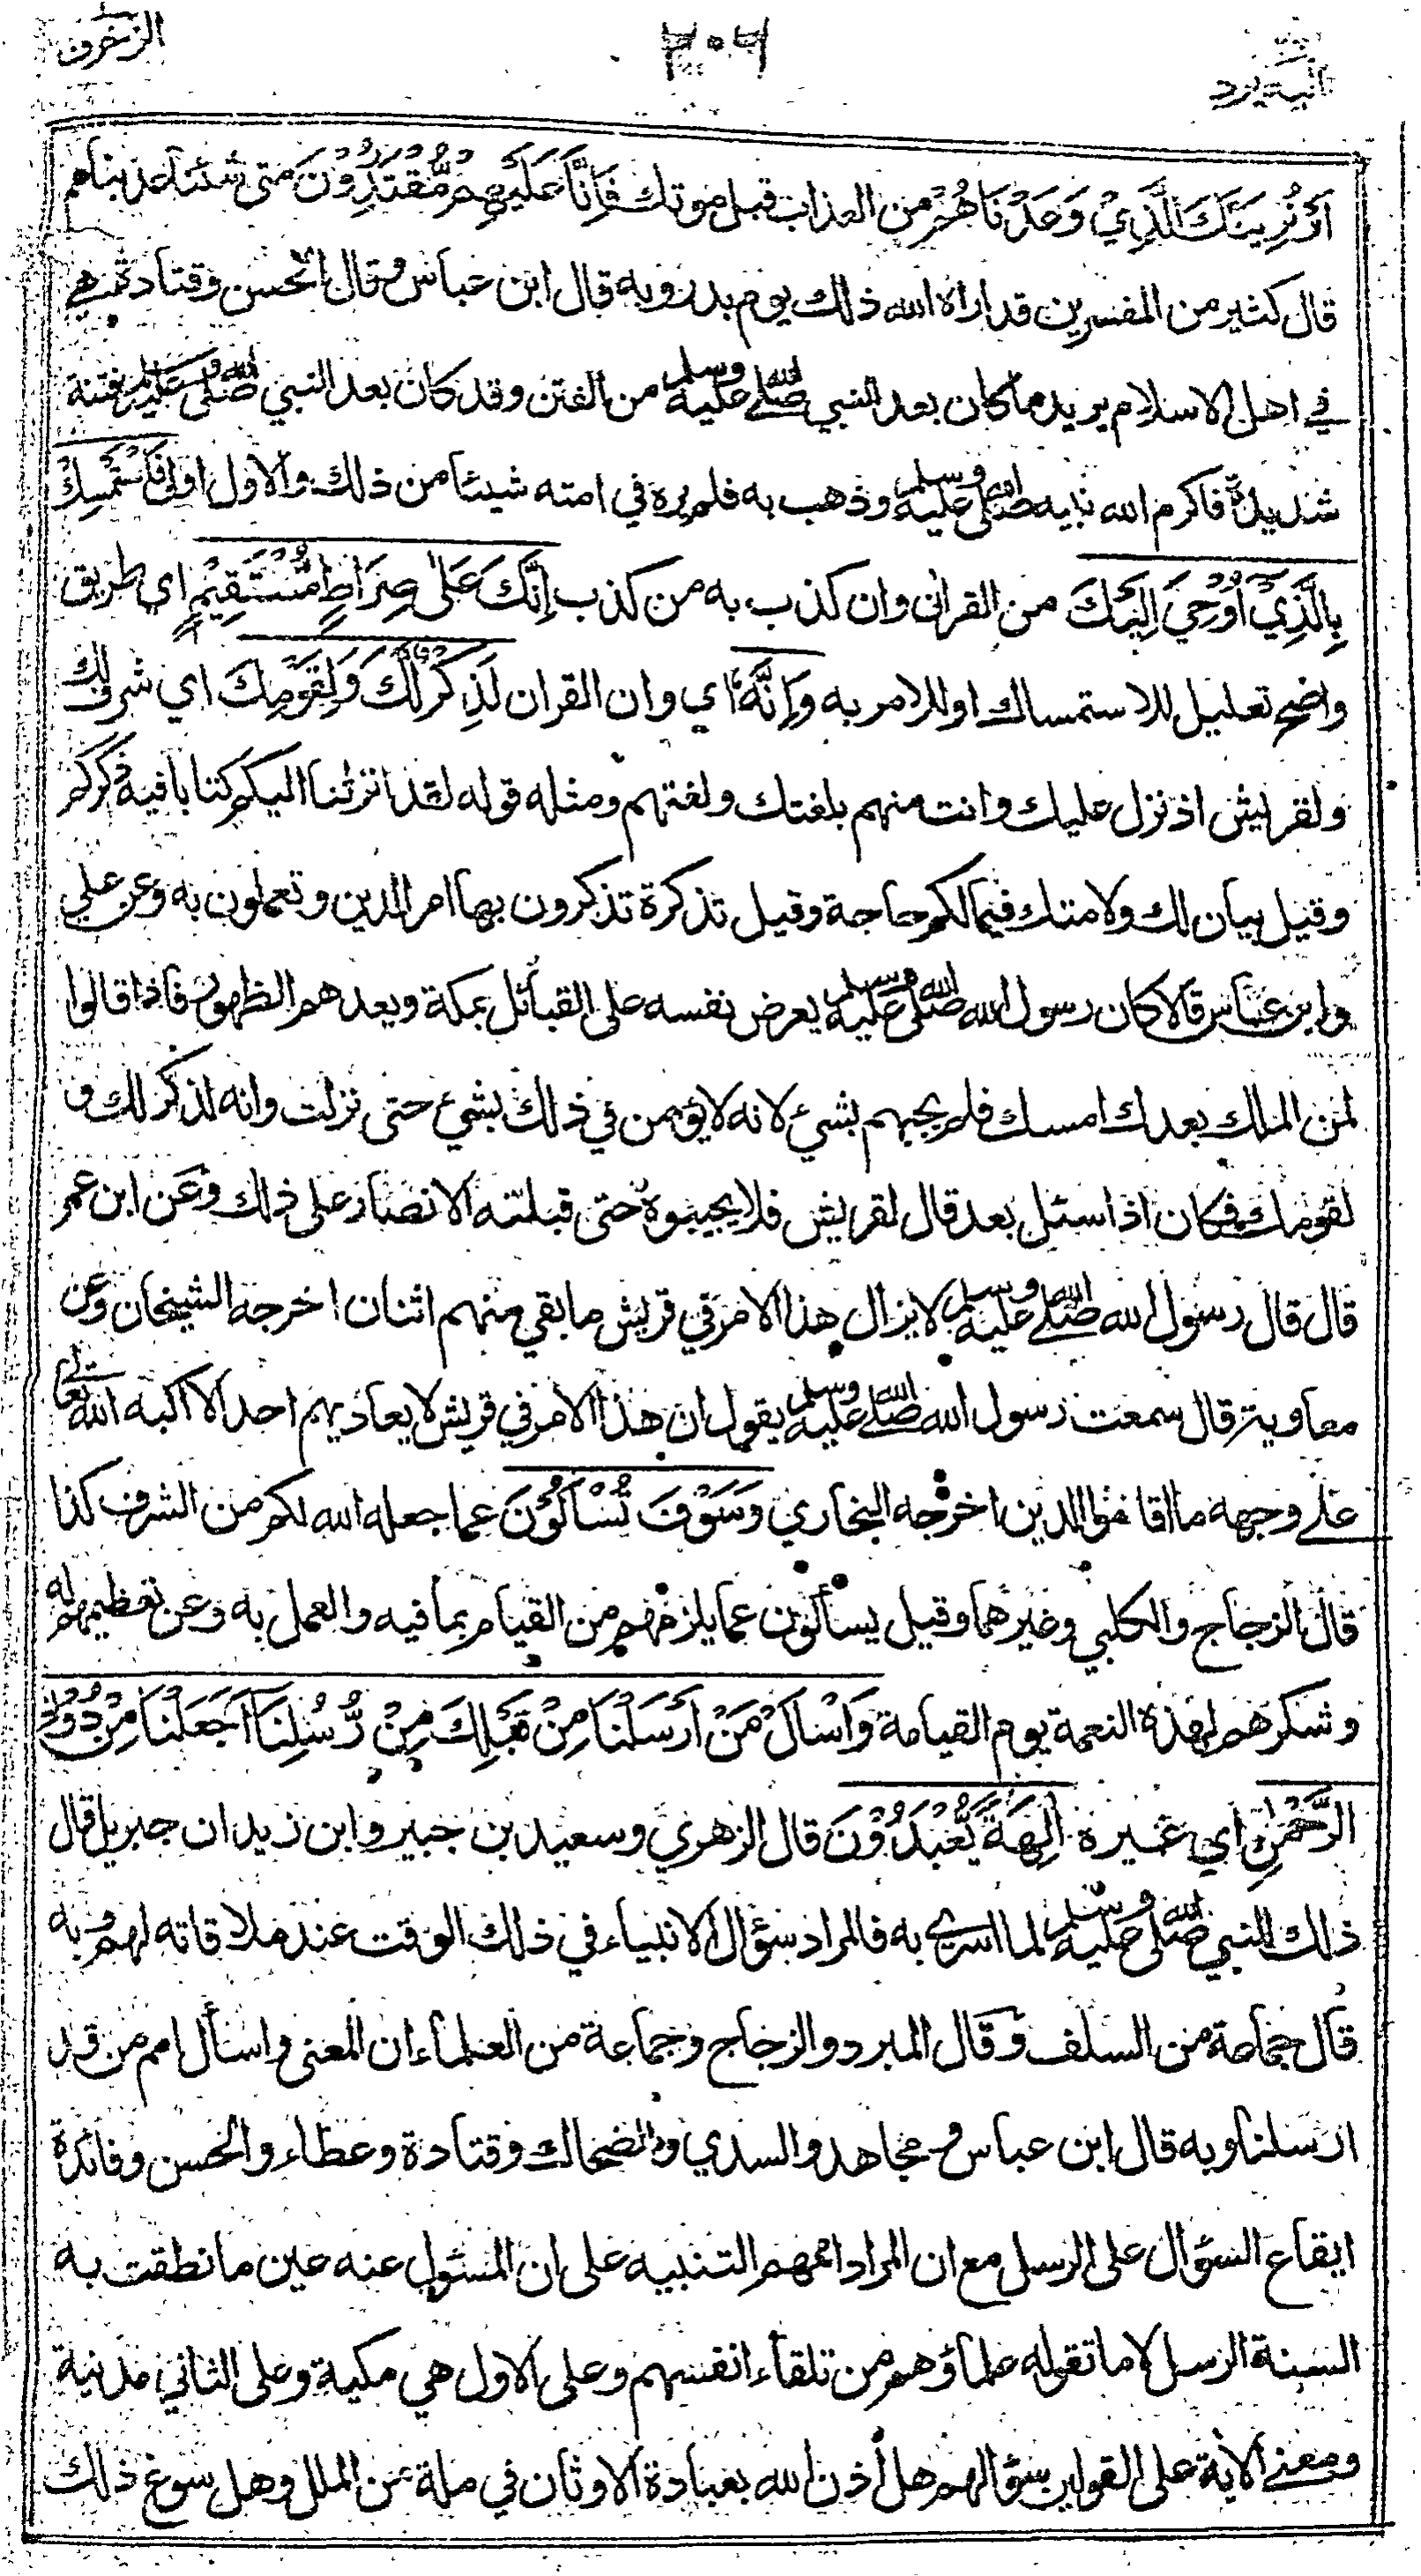 الزخرف
٢٠٦
اليه يرد
أَوْ نُرِيَنَّكَ الَّذِيْ وَعَدْنَاهُمْ من العذاب قبل موتك فَإِنَّا عَلَيْهِمْ مُّقْتَدِرُوْنَ متى شئنا عذبناهم
قال كثير من المفسرين قد اراه الله ذلك يوم بدر وبه قال ابن عباس وقال الحسن وقتادة هي
في اهل الاسلام يريد ما كان بعد النبي صلى الله عليه وسلم من الفتن وقد كان بعد النبي صلى الله عليه فتنة
شديدة فاكرم الله نبيه صلى الله عليه وسلم وذهب به فلم يره في امته شيئا من ذلك والاول اولى فَاسْتَمْسِكْ
بِالَّذِيْ أُوْحِيَ إِلَيْكَ من القران وان كذب به من كذب إِنَّكَ عَلَى صِرَاطٍ مُّسْتَقِيْمٍ اي طريق
واضح تعليل للاستمساك او للامر به وَإِنَّهُ اي وان القران لَذِكْرٌ لَّكَ وَلِقَوْمِكَ اي شرف لك
ولقريش اذ نزل عليك وانت منهم بلغتك ولغتهم ومثله قوله لقد انزلنا اليكم كتابا فيه ذكركم
وقيل بيان لك ولامتك فيما لكم حاجة وقيل تذكرة تذكرون بها امر الدين وتعملون به وعن علي
وابن عباس قالا كان رسول الله صلى الله عليه وسلم يعرض نفسه على القبائل بمكة ويعدهم الظهور فاذا قالوا
لمن الملك بعدك امسك فلم يجبهم بشيء لانه لا يؤمن في ذلك بشيء حتى نزلت وانه لذكر لك و
لقومك فكان اذا سئل بعد قال لقريش فلا يجيبوه حتى قبلته الانصار على ذلك وعن ابن عمر
قال قال رسول الله صلى الله عليه وسلم لا يزال هذا الامر في قريش ما بقي منهم اثنان اخرجه الشيخان وعن
معاوية قال سمعت رسول الله صلى الله عليه وسلم يقول ان هذا الامر في قريش لا يعاديهم احد الا اكبه الله تعالى
على وجهه ما اقاموا الدين اخرجه البخاري وَسَوْفَ تُسْأَلُوْنَ عما جعله الله لكم من الشرف كذا
قال الزجاج والكلبي وغيرهما وقيل يسألون عما يلزمهم من القيام بما فيه والعمل به وعن تعظيمهم له
وشكرهم لهذه النعمة يوم القيامة وَاسْأَلْ مَنْ أَرْسَلْنَا مِنْ قَبْلِكَ مِنْ رُّسُلِنَا أَجَعَلْنَا مِنْ دُوْنِ
الرَّحْمٰنِ اي غيره آلِهَةً يُّعْبَدُوْنَ قال الزهري وسعيد بن جبير وابن زيد ان جبريل قال
ذلك للنبي صلى الله عليه وسلم لما اسري به فالمراد سؤال الانبياء في ذلك الوقت عند ملاقاته لهم وبه
قال جماعة من السلف وقال المبرد والزجاج وجماعة من العلماء ان المعنى واسأل امم من قد
ارسلنا وبه قال ابن عباس ومجاهد والسدي والضحاك وقتادة وعطاء والحسن وفائدة
ايقاع السؤال على الرسل مع ان المراد اممهم التنبيه على ان المسئول عنه عين ما نطقت به
السنة الرسل لا ما تقوله علماؤهم من تلقاء انفسهم وعلى الاول هي مكية وعلى الثاني مدنية
ومعنى الاية على القولين سؤالهم هل أذن الله بعبادة الاوثان في ملة من الملل وهل سوغ ذلك